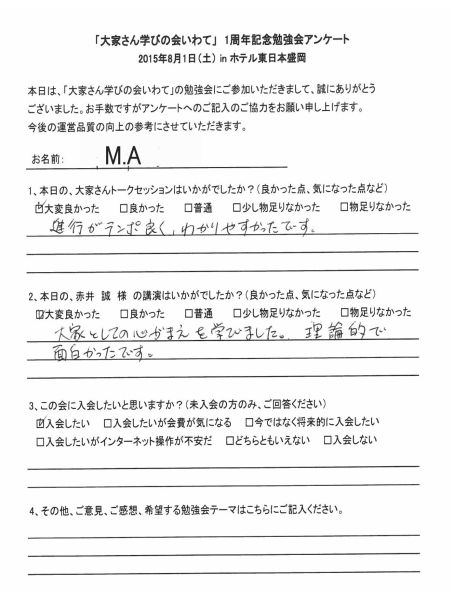 「大家さん学びの会いわて」 1周年記念勉強会アンケート
2015年8月1日(土) in ホテル東日本盛岡
本日は、「大家さん学びの会いわて」の勉強会にご参加いただきまして、誠にありがとう
ございました。お手数ですがアンケートへのご記入のご協力をお願い申し上げます。
今後の運営品質の向上の参考にさせていただきます。
お名前: M.A
1、本日の、大家さんトークセッションはいかがでしたか?(良かった点、気になった点など)
☑大変良かった □良かった □普通 □少し物足りなかった □物足りなかった
進行がテンポ良く、わかりやすかったです。
2、本日の、赤井 誠 様 の講演はいかがでしたか?(良かった点、気になった点など)
☑大変良かった □良かった □普通 □少し物足りなかった □物足りなかった
大家としての心がまえを学びました。 理論的で
面白かったです。
3、この会に入会したいと思いますか?(未入会の方のみ、ご回答ください)
☑入会したい □入会したいが会費が気になる □今ではなく将来的に入会したい
□入会したいがインターネット操作が不安だ □どちらともいえない □入会しない
4、その他、ご意見、ご感想、希望する勉強会テーマはこちらにご記入ください。